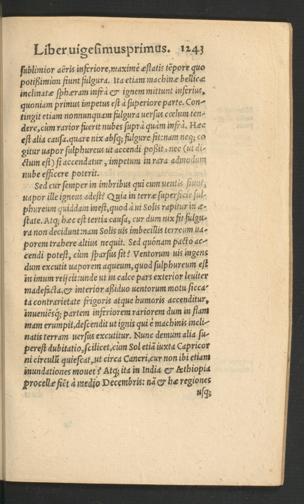 Liber uigesimusprimus. 1243
sublimior aëris inferiore, maximè æstatis tẽpore quo
potißimùm fiunt fulgura. Ita etiam machinæ bellicæ
inclinatæ sphæram infrà & ignem mittunt inferius,
quoniam primus impetus est à superiore parte. Con-
tingit etiam nonnunquam fulgura uersus cœlum ten-
dere, cùm rarior fuerit nubes suprà quàm infrà. Hæc
est alia causa, quare nix absq; fulgure fit: nam neq; co
gitur uapor sulphureus ut accendi poßit, nec (ut di-
ctum est) si accendatur, impetum in rara admodum
nube efficere poterit.
Sed cur semper in imbribus qui cum uentis fiunt,
uapor ille igneus adest? Quia in terræ superficie sul-
phureum quiddam inest, quod à ui Solis rapitur in æ-
state. Atq; hæc est tertia causa, cur dum nix fit fulgu-
ra non decidunt: nam Solis uis imbecillis terreum ua-
porem trahere altius nequit. Sed quónam pacto ac-
cendi potest, cùm sparsus sit? Ventorum uis ingens
dum excutit uaporem aqueum, quod sulphureum est
in imum reijcit: unde ut in calce pars exterior leuiter
madefacta, & interior aßiduo uentorum motu sicca-
ta contrarietate frigoris atque humoris accenditur,
inueniẽsq; partem inferiorem rariorem dum in flam
mam erumpit, descendit ut ignis qui è machinis incli-
natis terram uersus excutitur. Nunc demum alia su-
perest dubitatio, scilicet, cùm Sol etiã iuxta Capricor
ni circulũ quiescat, ut circa Cancri, cur non ibi etiam
inundationes mouet? Atq; ita in India & Aethiopia
procellæ fiẽt à medio Decembris: nã & hæ regiones
usq;